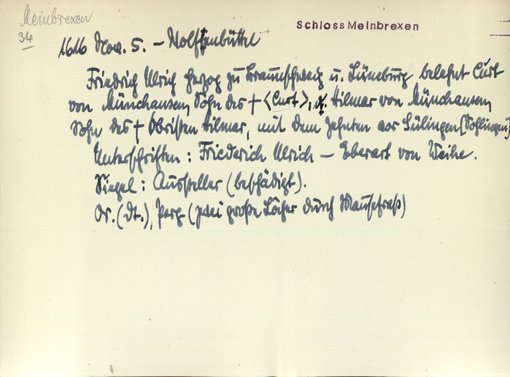 Meinbrexen
34
Schloss Meinbrexen
1616 Nov. 5. – Wolffenbüttel
Friedrich Ulrich Herzog zu Braunschweig u. Lüneburg belehnt Curt
von Münchausen, Sohn des † <Curt>, u. Hilmar von Münchausen,
Sohn des † Obristen Hilmar, mit dem Zehnten vor Sülingen [Sohlingen]
Unterschriften: Friederich Ulrich – Eberart von Weihe.
Siegel: Aussteller (beschädigt).
Or. (dt.), Perg. (zwei große Löcher durch Mausefraß)